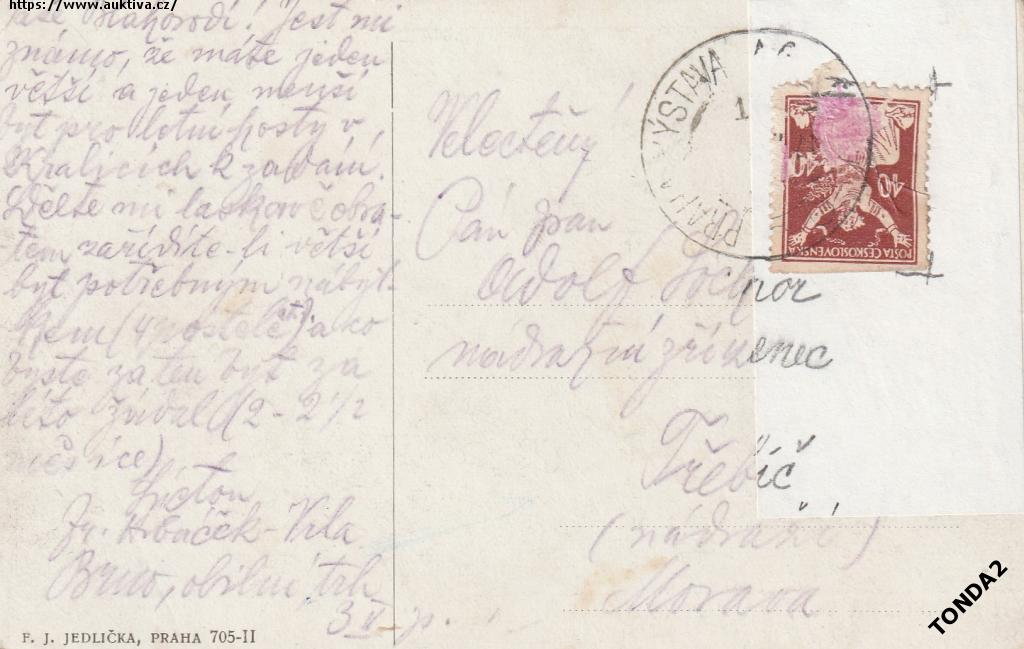 https://www.auktiva.cz/
Vaše Blahorodí! Jest mi
známo, že máte jeden
větší a jeden menší
byt pro letní hosty v
Kralicích k zadání.
Sdělte mi laskavě obra-
tem zařídíte-li větší
byt potřebným nábyt-
kem (4 postele) a co
byste za ten byt za
léto žádal (2-2 1/2
měsíce)
Brno, obilní trh
F. J. JEDLIČKA, PRAHA 705-II
VÝSTAVA
PRAHA
1
40
40
POŠTA ČESKOSLOVENSKÁ
Velectěný
Pán pan
Adolf
nádražní zřízenec
Třebíč
(nádraží)
Morava
TONDA2